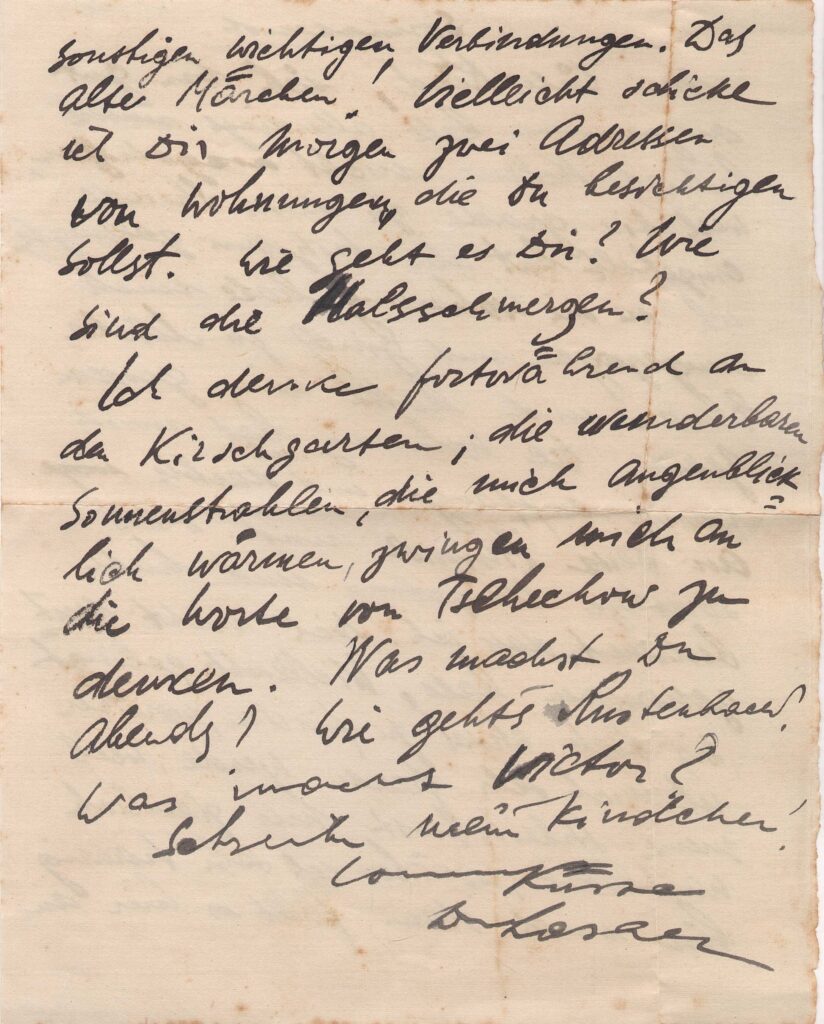 sonstigen wichtigen Verbindungen. Das
alte Märchen! Vielleicht schicke
ich Dir morgen zwei Adressen
von Wohnungen, die Du besichtigen
sollst. Wie geht es Dir? Wie
sind die Halsschmerzen?
Ich denke fortwährend an
den Kirschgarten; die wunderbaren
Sonnenstrahlen, die mich augenblick=
lich wärmen, zwingen mich an
die Worte von Tschechow zu
denken. Was machst Du
Abends? Wie gehts
Was macht Victor?
Schreibe mein Kindchen!
Küsse